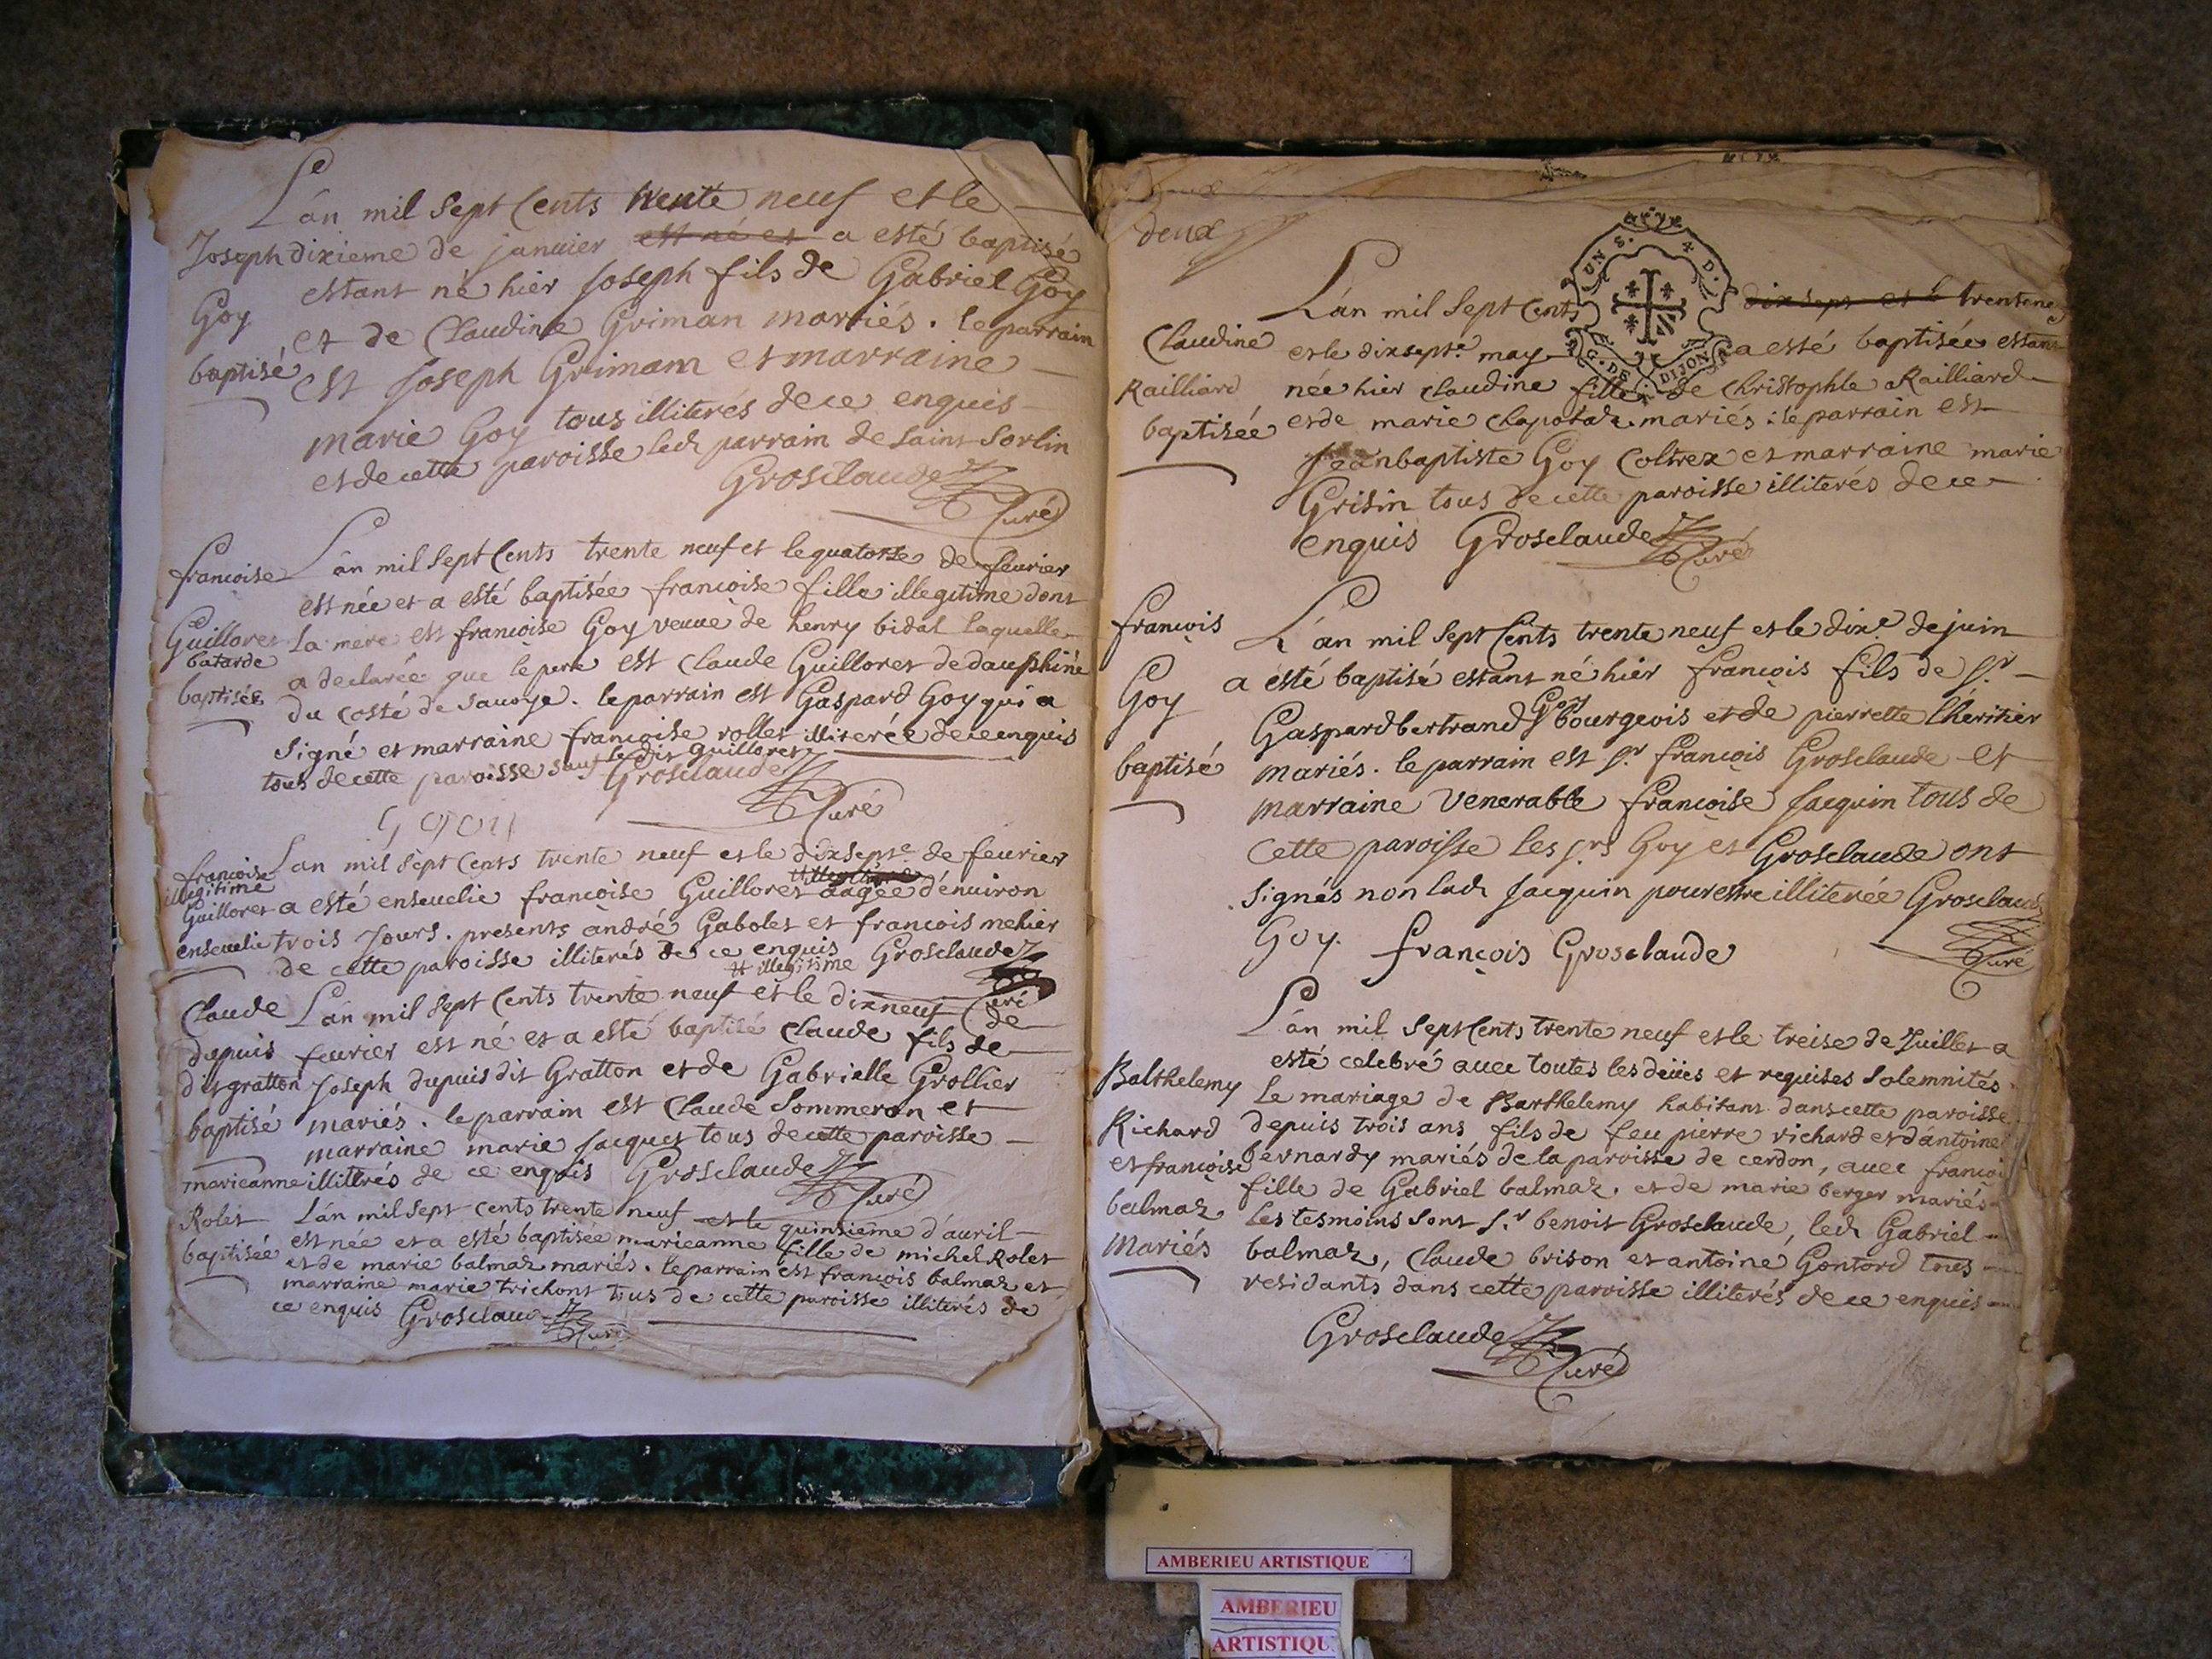 L'an mil sept Cents trente neuf et le
Joseph dixieme de januier est né et a esté baptisé
estant né hier Joseph fils de Gabriel Goy
Goy
et de Claudine Griman mariés. le parrain
baptisé
est Joseph Grimam et marraine
marie Goy tous illiterés de ce enquis
et de cette paroisse led parrain de saint Sorlin
Grosclaude
Curé
francoise L'an mil sept Cents trente neuf et le quatorse de feurier
est née et a esté baptisée francoise fille illegitime dont
Guilloret la mere est francoise Goy veuue de henry bidal laquelle
batarde
a declarée que le pere est Claude Guilloret de dauphiné
baptisée
du costé de sauoye. le parrain est Gaspard Goy qui a
signé et marraine francoise rollet illiterée de ce enquis
tous de cette paroisse sauf ledit Guilloret
Grosclaude
Curé
G goy
L'an mil sept Cents trente neuf et le dixsept.e de feurier
francoise
illegitime
Guilloret a esté enseuelie francoise Guilloret aagée d'enuiron
enseuelie trois Jours. presents andré Gabolet et francois mehier
de cette paroisse illiterés de ce enquis Grosclaude
# illegitime
Curé
Claude L'an mil sept Cents trente neuf et le dixneuf de
dupuis feurier est né et a esté baptisé Claude fils de
dit gratton Joseph dupuis dit Gratton et de Gabrielle Grollier
baptisé mariés. le parrain est Claude Sommeron et
marraine marie Jacquet tous de cette paroisse
illiterés de ce enquis Grosclaude
Curé
marieanne
Rolet L'an mil sept cents trente neuf et le quinsieme d'auril
est née et a esté baptisée marieanne fille de michel Rolet
baptisée et de marie balmaz mariés. le parrain est francois balmaz et
marraine marie trichont tous de cette paroisse illiterés de
ce enquis Grosclaude
Curé
deux
UN S. 4 D.
G. DE DIJON
L'an mil sept Cents dix sept et le trente neuf
Claudine et le dixsept.e may a esté baptisée estant
Railliard née hier Claudine fille de Christophle Railliard
baptisée et de marie Chapotat mariés: le parrain est
Jeanbaptiste Goy Coltrex et marraine marie
Grisin tous de cette paroisse illiterés de ce
enquis Grosclaude
Curé
francois L'an mil sept Cents trente neuf et le dix.e de juin
a esté baptisé estant né hier francois fils de S.r
Goy
Goy
Gaspard bertrand bourgeois et de pierrette l'heritier
baptisé mariés. le parrain est S.r francois Grosclaude et
marraine Venerable françoise Jacquin tous de
cette paroisse les S.rs Goy et Grosclaude ont
signés non lad. Jacquin pour estre illiterée Grosclaude
Goy. françois Grosclaude
Curé
L'an mil sept Cents trente neuf et le treise de Juillet a
esté celebré auec toutes les deües et requises solemnités
Balthelemy le mariage de Barthelemy habitant dans cette paroisse
Richard depuis trois ans fils de feu pierre richard et d'antoine
et françoise bernardy mariés de la paroisse de cerdon, auec françoi
fille de Gabriel balmaz. et de marie berger mariés
balmaz les tesmoins sont S.r benoit Grosclaude, led. Gabriel
Mariés balmaz, Claude brison et antoine Gontard tous
residants dans cette paroisse illiterés de ce enquis
Grosclaude
Curé
AMBERIEU ARTISTIQUE
AMBERIEU
ARTISTIQU